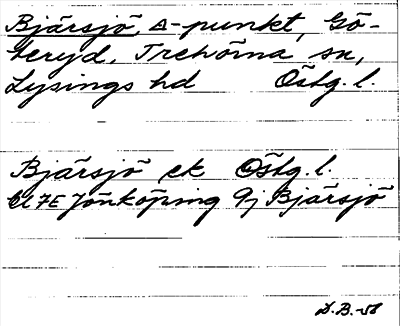 Bjärsjö, △-punkt, Gö-
teryd, Trehörna sn,
Lysings hd Östg. l.
Bjärsjö ek Östg. l.
7E Jönköping 9j Bjärsjö
D.B.-58